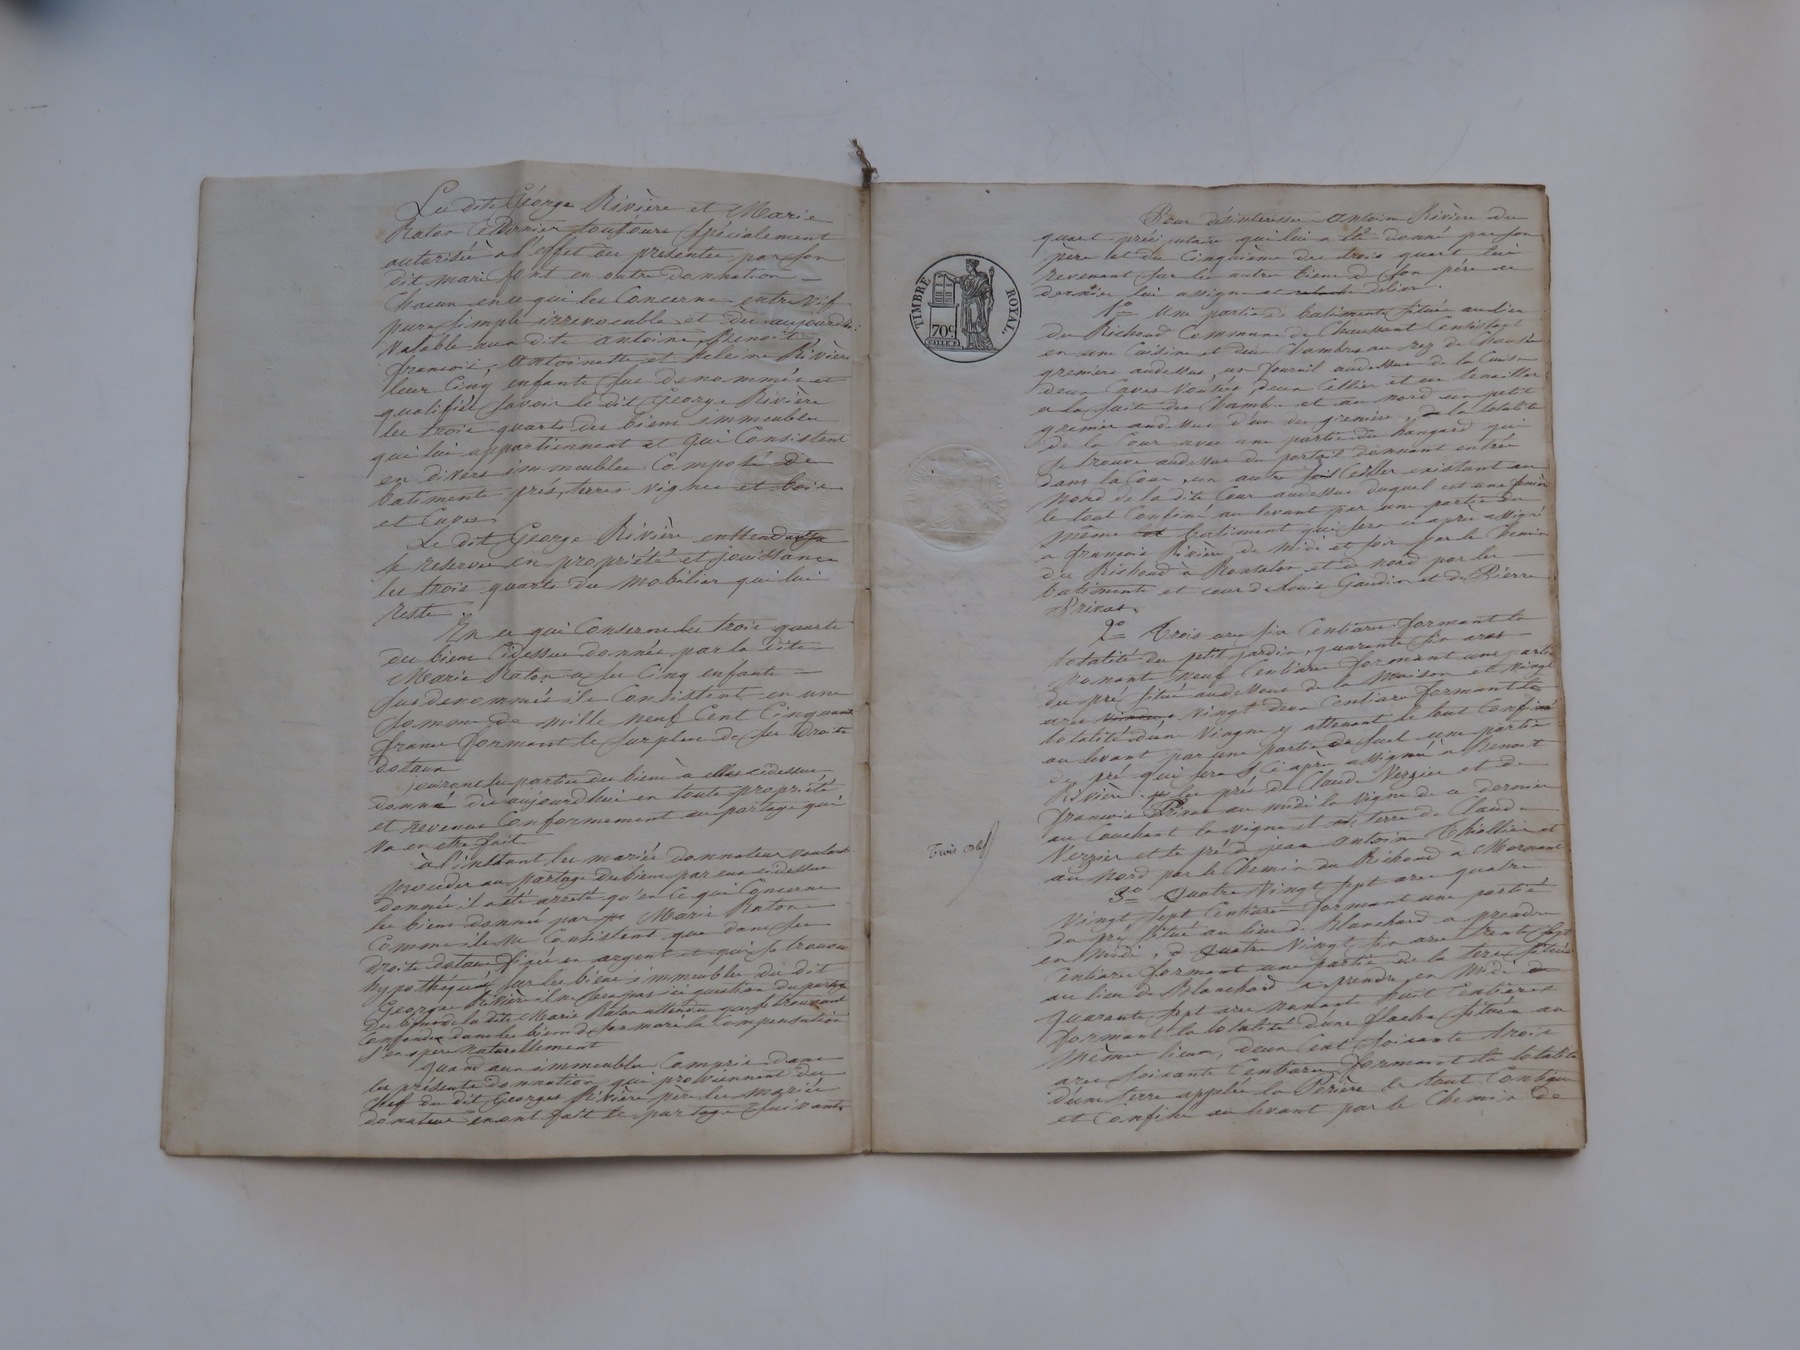 Les dits George Rivière et Marie
Raton ce dernier toujours spécialement
autorisée à l'effet des presentes par son
dit mari font en outre donnation
Chacun en ce qui les Concerne entre vif
pure simple irrevocable et dès aujourd'hui
Valable aux dits antoine, Benoit,
francois, antoinette et heleine Rivière
leur Cinq enfants sus denommés et
qualifiés savoir le dit George Rivière
les trois quarts des biens immeubles
qui lui appartiennent et qui Consistent
en divers immeubles Composé de
batiments prés, terres vignes et bois
et Cuves
Le dit George Rivière enttend
se reserver en propriété et jouissance
les trois quarts du mobilier qui lui
reste
En ce qui Conserne les trois quarts
des biens Cidessus donnés par la dite
Marie Raton a ses Cinq enfants
susdenommés ils Consistent en une
somme de mille neuf Cent Cinquante
francs formant le surplus de ses droits
dotaux
jouiront les parties des biens à elles cidessus
donné dès aujourdhui en toute propriété
et revenus Conformement au partage qui
va en etre fait
à l'instant les mariés donnateur voulant
proceder au partage des biens par eux cidessus
donnés il a été arreté qu'en ce qui Concerne
les biens donnés par Marie Raton
Comme ils ne Consistent que dans ses
droits dotaux fixés en argent et qui se trouvent
hypothéqués sur les biens immeubles du dit
George Rivière il ne sera pas ici question du partage
des biens de la dite Marie Raton attendu que se trouvant
Confondu dans les biens de son mari la Compensation
s'en opere naturellement
quand aux immeubles Compris dans
les présente donnation qui proviennent du
Chef du dit Georges Rivière père les mariés
donateur en ont fait le partage suivant
TIMBRE ROYAL
70c
Trois
Pour désinteresser antoine Rivière du
quart préciputaire qui lui a été donné par son
père et du Cinquième des trois quart lui
revenant sur les autres biens de son père ce
dernier lui assigne et delivre
1° Une partie de batiments située au lieu
du Richoud Commune de Chaussant Consistant
en une Cuisine et deux Chambres au rez de chaussée
greniers audessus, un fournil audessus de la Cuisine
deux Caves Voutées, deux Cellier et un tenaillier
a la suite des Chambre et au nord un petit
grenier audessus d'un des greniers, la totalité
de la Cour avec une partie du hangard qui
se trouve audessus du portail donnant entrée
dans la Cour, un autre Cellier existant au
nord de la dite Cour audessus duquel est une fenière
le tout Confiné au levant par une partie du
même batiment qui sera ci après assigné
à francois Rivière, de midi et soir par le Chemin
du Richoud à Rontalon et de nord par les
batiments et cour de Louis Gaudin et de Pierre
Privas,
2° Trois ares six Centiares formant la
totalité du petit jardin, quarante six ares
nonante neuf Centiare formant une partie
du pré situé audessous de la maison et vingt
ares vingt deux Centiare formant la
totalité d'une Vingne y attenant le tout Confiné
au levant par une partie de une partie
de pré qui sera Ci après assigné à Benoit
Rivière, les prés de Claude Verzier et de
francois Privas au midi la Vigne de ce dernier
au Couchant la vigne et terre de Claude
Verzier et le pré de jean antoine Thiollier et
au nord par le Chemin du Richoud à Mornant
3° Quatre Vingt sept ares quatre
Vingt sept Centiares formant une partie
du pré situé au lieu de Blanchard a prendre
en midi, Quatre Vingt six ares trente sept
Centiares formant une partie de la terre située
au lieu de Blanchard à prendre en midi
quarante sept ares nonante huit Centiares
formant la totalité d'une située au
même lieu, deux Cent soixante trois
ares soixante Centiares formant la totalité
d'une terre appelée la Perière le tout Contigu
et Confiné au levant par le Chemin de